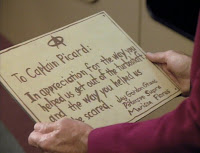 To Captain Picard:
In appreciation for the way you
helped us get out of the turboshaft
and the way you helped us
be scared.
Jay Gordon Graas
Patterson Supra
Marissa Flores